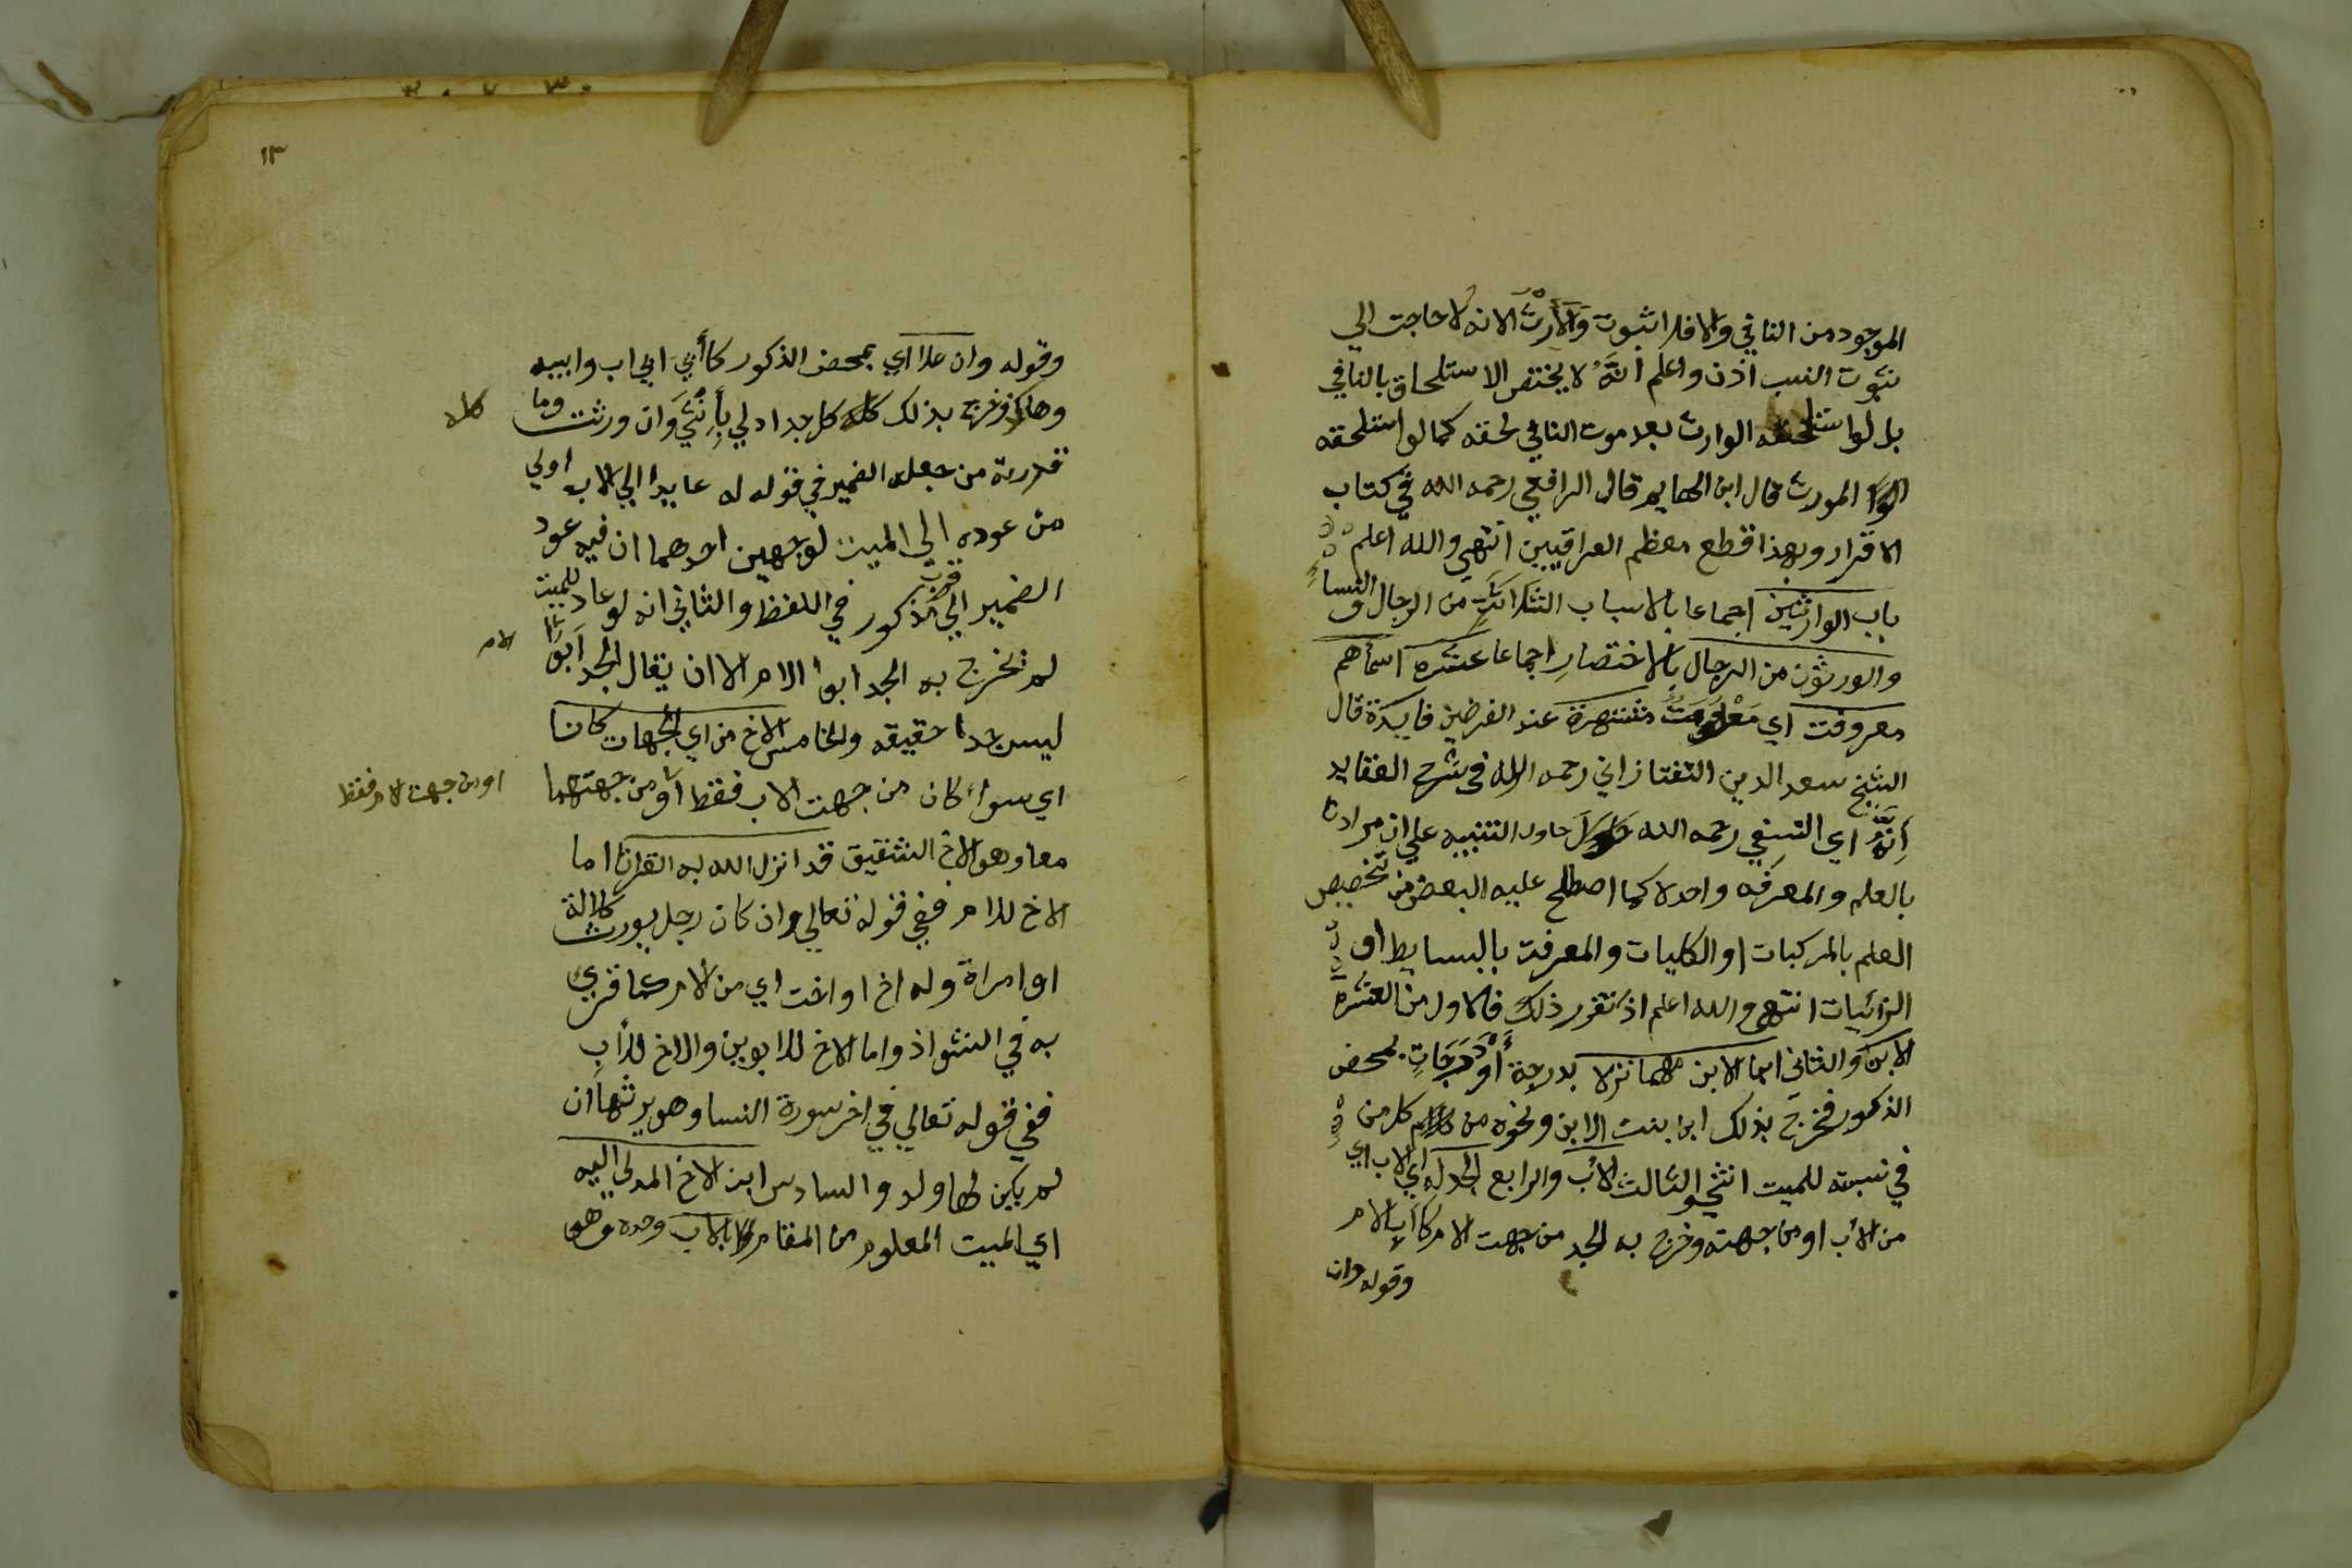 الموجود من النافي والا فلا ثبوت والارث الا انه لا حاجت الي
ثبوت النسب اذن واعلم انه لا يختص الاستلحاق بالنافي
بل لو استلحقه الوارث بعد موت النافي لحقه كما لو استلحقه
المورث قال ابن الهايم قال الرافعي رحمه الله في كتاب
الاقرار وبهذا قطع معظم العراقيين انتهي والله اعلم
باب الوارثين اجماعا بالاسباب من الرجال والنسا
والورثون من الرجال بالاختصار اجماعا عشره اسماهم
معروفت اي معلومت مشتهرة عند الفرضين فايدة قال
الشيخ سعد الدين التفتازاني رحمه الله في شرح العقايد
انه اي النسفي رحمه الله حاول التنبيه علي ان مرادنا
بالعلم والمعرفه واحد لا كما اصطلح عليه البعض من تخصيص
العلم بالمركبات او الكليات والمعرفت بالبسايط او
الزائيات انتهي والله اعلم اذ تقرر ذلك فالاول من العشرة
الابن والثاني ابن الابن مهما نزلا بدرجة او درجات بمحض
الذكور فخرج بذلك ابن بنت الابن ونحوه من كل من
في نسبته للميت انثي والثالث الاب والرابع الجد له اي الاب اي
من الاب او من جهته وخرج به الجد من جهت الام كاب الام
وقوله وان
١٣
وقوله وان علا اي بمحض الذكور كأبي ابي اب وابيه
وهاكذ فخرج بذلك كل جد ادلي بأنثي وان ورثت وما
كلا
قدرته من جعل الضمير في قوله له عايدا الي الاب اولي
من عوده الي الميت لوجهين احدهما ان فيه عود
الضمير الي قرب مذكور في اللفظ والثاني انه لو عاد للميت
لم تخرج به الجد ابوا الام الا ان يقال الجد ابوا
الام
ليس جدا حقيقه والخامس الاخ من اي الجهات كانا
اي سواء كان من جهت الاب فقط او من جهتهما
او من جهت الام فقط
معا وهو الاخ الشقيق قد انزل الله به القرانا اما
الاخ للام ففي قوله تعالي وان كان رجل يورث كلالة
او امراة وله اخ او اخت اي من الام كما قري
به في الشواذ واما الاخ للابوين والاخ للأب
ففي قوله تعالي في اخر سورة النسا وهو يرثها ان
لم يكن لها ولد والسادس ابن الاخ المدلي اليه
اي الميت المعلوم من المقام بالاب وحده وهو